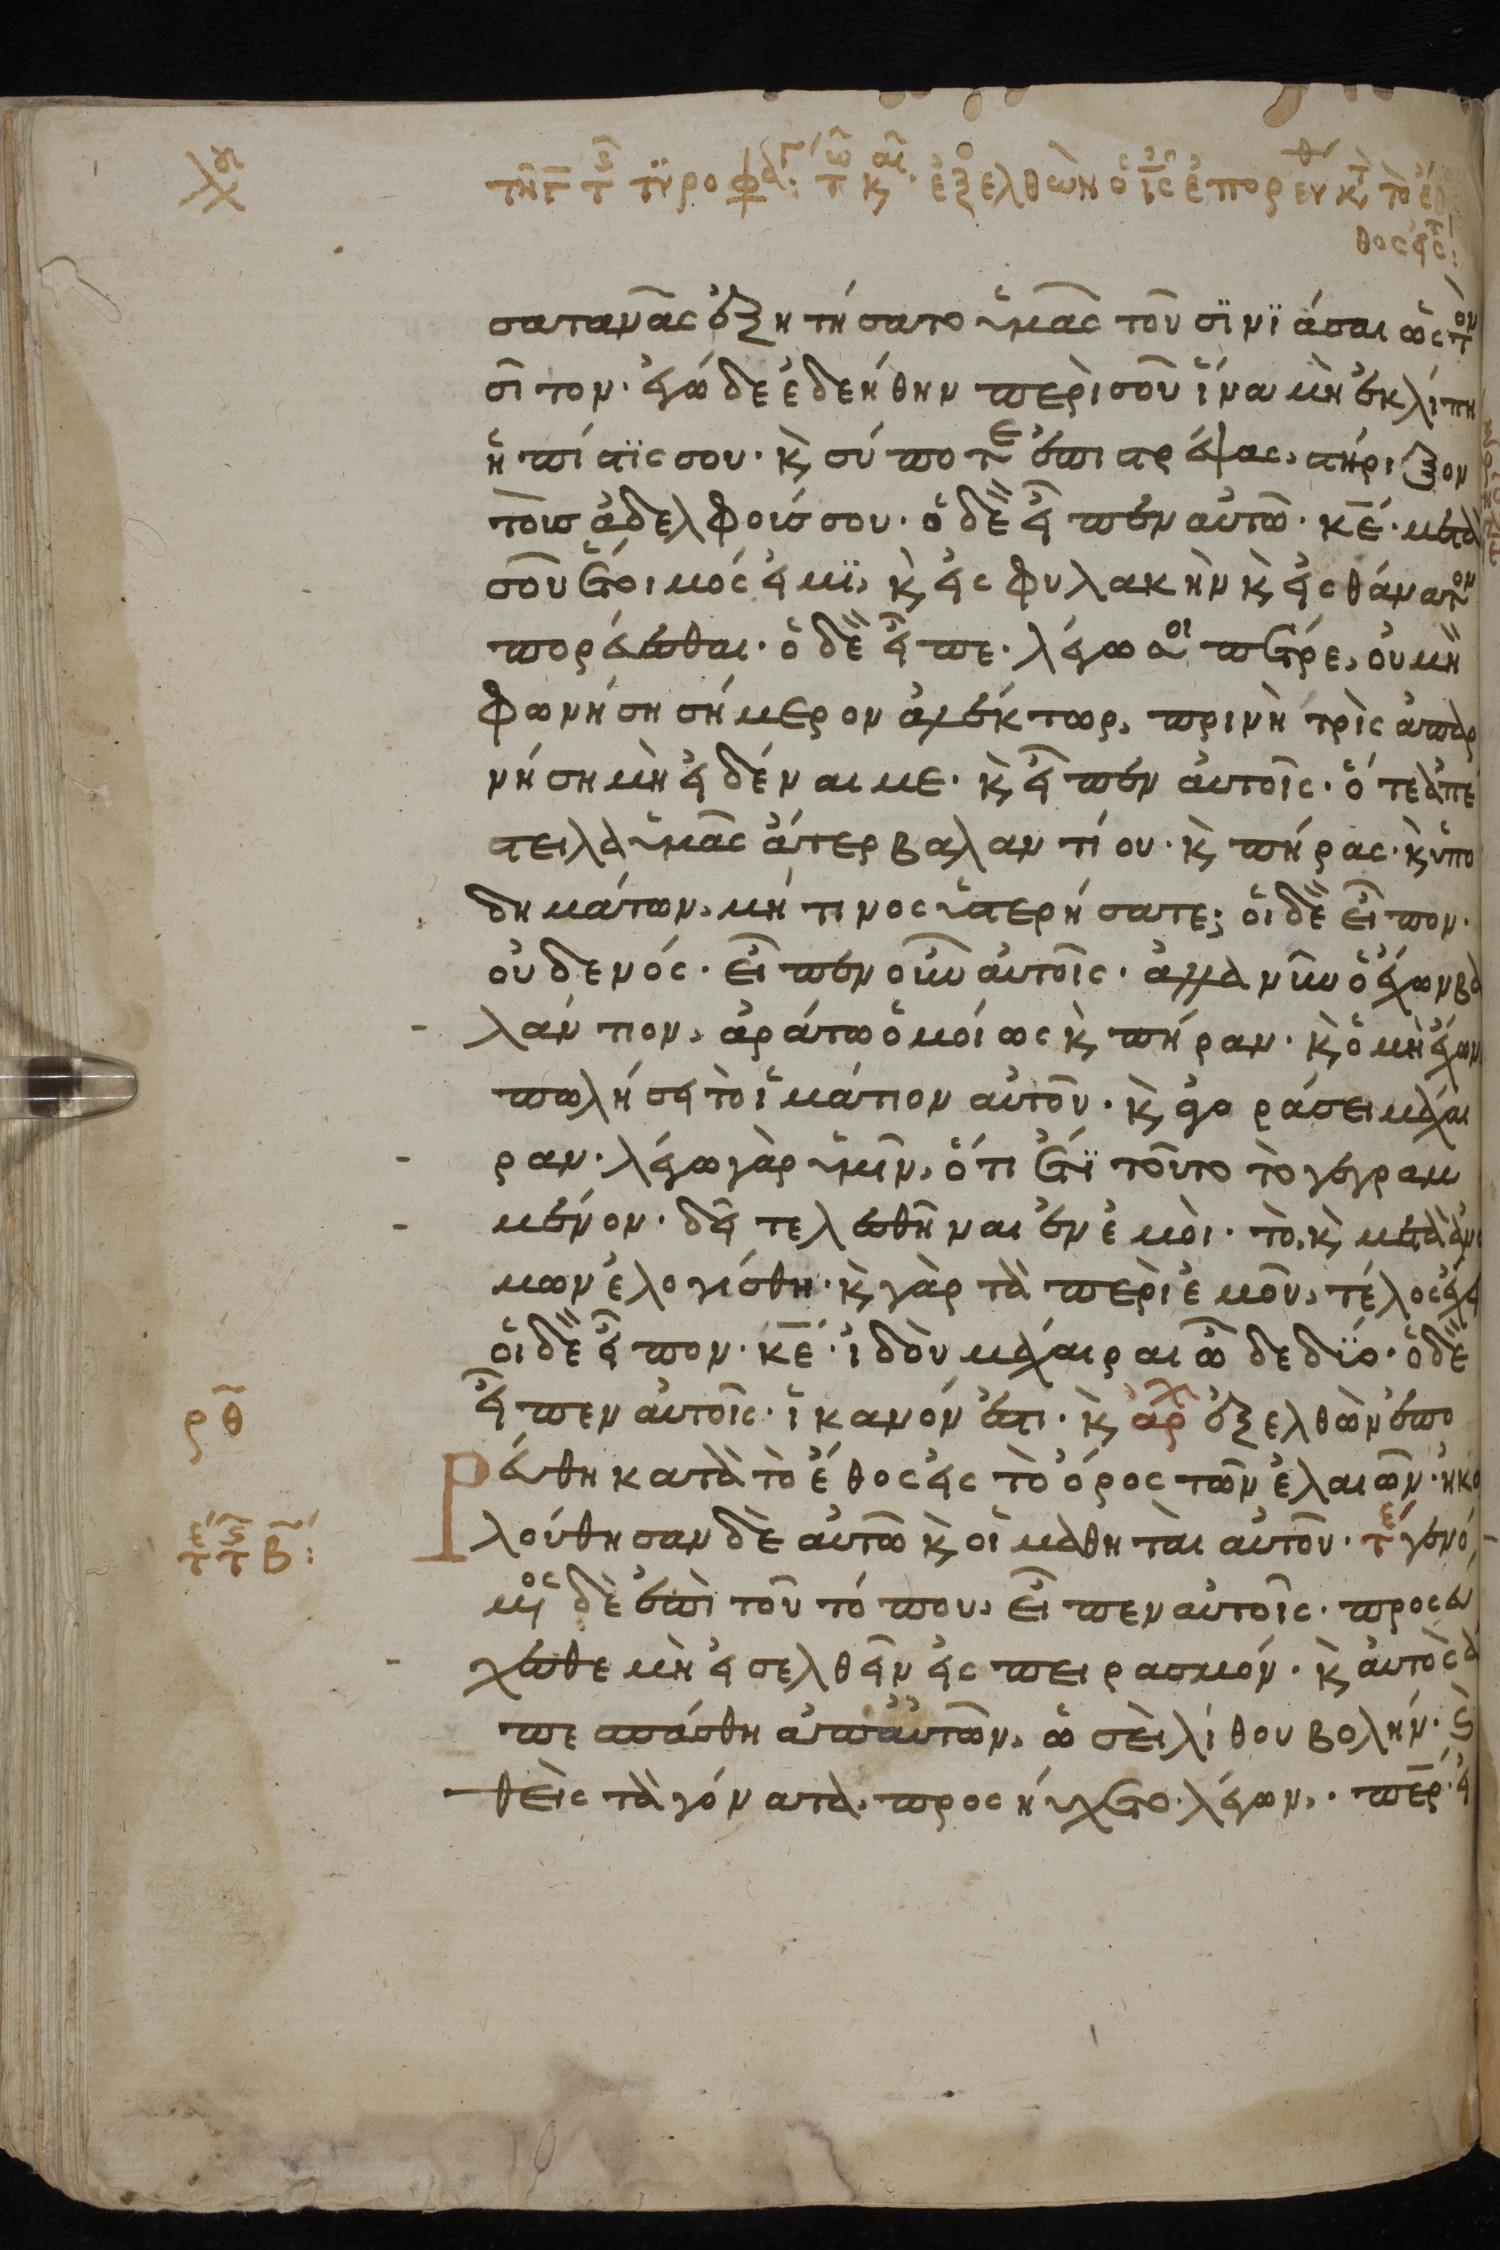 τῇ γ τῆς τυροφά: τῷ και· ἐξελθὼν ὁ ις ἐπορεύθ κτ τὸ ἔ
θος εἰς:
σατανᾶς ἐξητήσατο ὑμᾶς τοῦ σϊνϊάσαι ὡς τὸν
σῖτον· ἐγώ δε ἐδεήθην περὶ σοῦ ἵνα μὴ ἐκλίπη
ἡ πίστϊς σου· κ σύ ποτε ἐπιστρέψας, στήριξον
τοῖσ ἀδελφοίς σου· ὁ δὲ εἶπεν αὐτῶ· κε· μετὰ
σοῦ ἕτοιμός εἰμϊ, κ εἰς φυλακὴν κ εἰς θάνατον
πορεύεσθαι· ὁ δὲ εἶπε· λέγω σοι πέτρε, οὐ μὴ
φωνήση σήμερον ἀλέκτωρ, πρινὴ τρὶς ἀπαρ
νήση μὴ εἰδέναι με· κ εἶπεν αὐτοῖς· ὅτε ἀπέ
στειλα ὑμᾶς ἄτερ βαλαντίου· κ πήρας· κ ὑπο
δημάτων, μή τινος ὑστερήσατε; οἱ δὲ εἶπον·
οὐδενός· εἶπεν οὖν αὐτοῖς· ἀλλὰ νῦν ὁ ἔχων βα
λάντιον, ἀράτω ὁμοίως κ πήραν· κ ὁ μὴ ἔχων
πωλήσει τὸ ἱμάτιον αὐτοῦ· κ ἀγοράσει μάχαι
ραν· λέγω γὰρ ὑμῖν, ὅτι ἔτϊ τοῦτο τὸ γεγραμ
μένον· δεῖ τελεσθῆναι ἐν ἐμοὶ· τὸ, κ μετὰ ἀνό
μων ἐλογίσθη· κ γὰρ τὰ περὶ ἐμοῦ, τέλος ἔχει
οἱ δὲ εἶπον· κε· ἰδοὺ μάχαιραι ὧδε δϊό· ὁ δὲ
εἶπεν αὐτοῖς· ἱκανόν ἐστι· κ ἀρχ ἐξελθὼν ἐπο
ρθ
Ρεύθη κατὰ τὸ ἔθος εἰς τὸ ὄρος τῶν ἐλαιῶν· ἠκο
λούθησαν δὲ αὐτῶ κ οἱ μαθηταὶ αὐτοῦ· τέ γενό
μενος δὲ ἐπὶ τοῦ τόπου, εἶπεν αὐτοῖς· προσεύ
χεσθε μὴ εἰσελθεῖν εἰς πειρασμόν· κ αὐτὸς ἀ
πεσπάσθη ἀπ αὐτῶν, ὡσεὶ λίθου βολήν·
θεὶς τὰ γόνατα, προσηύχετο· λέγων,· περ· εἰ